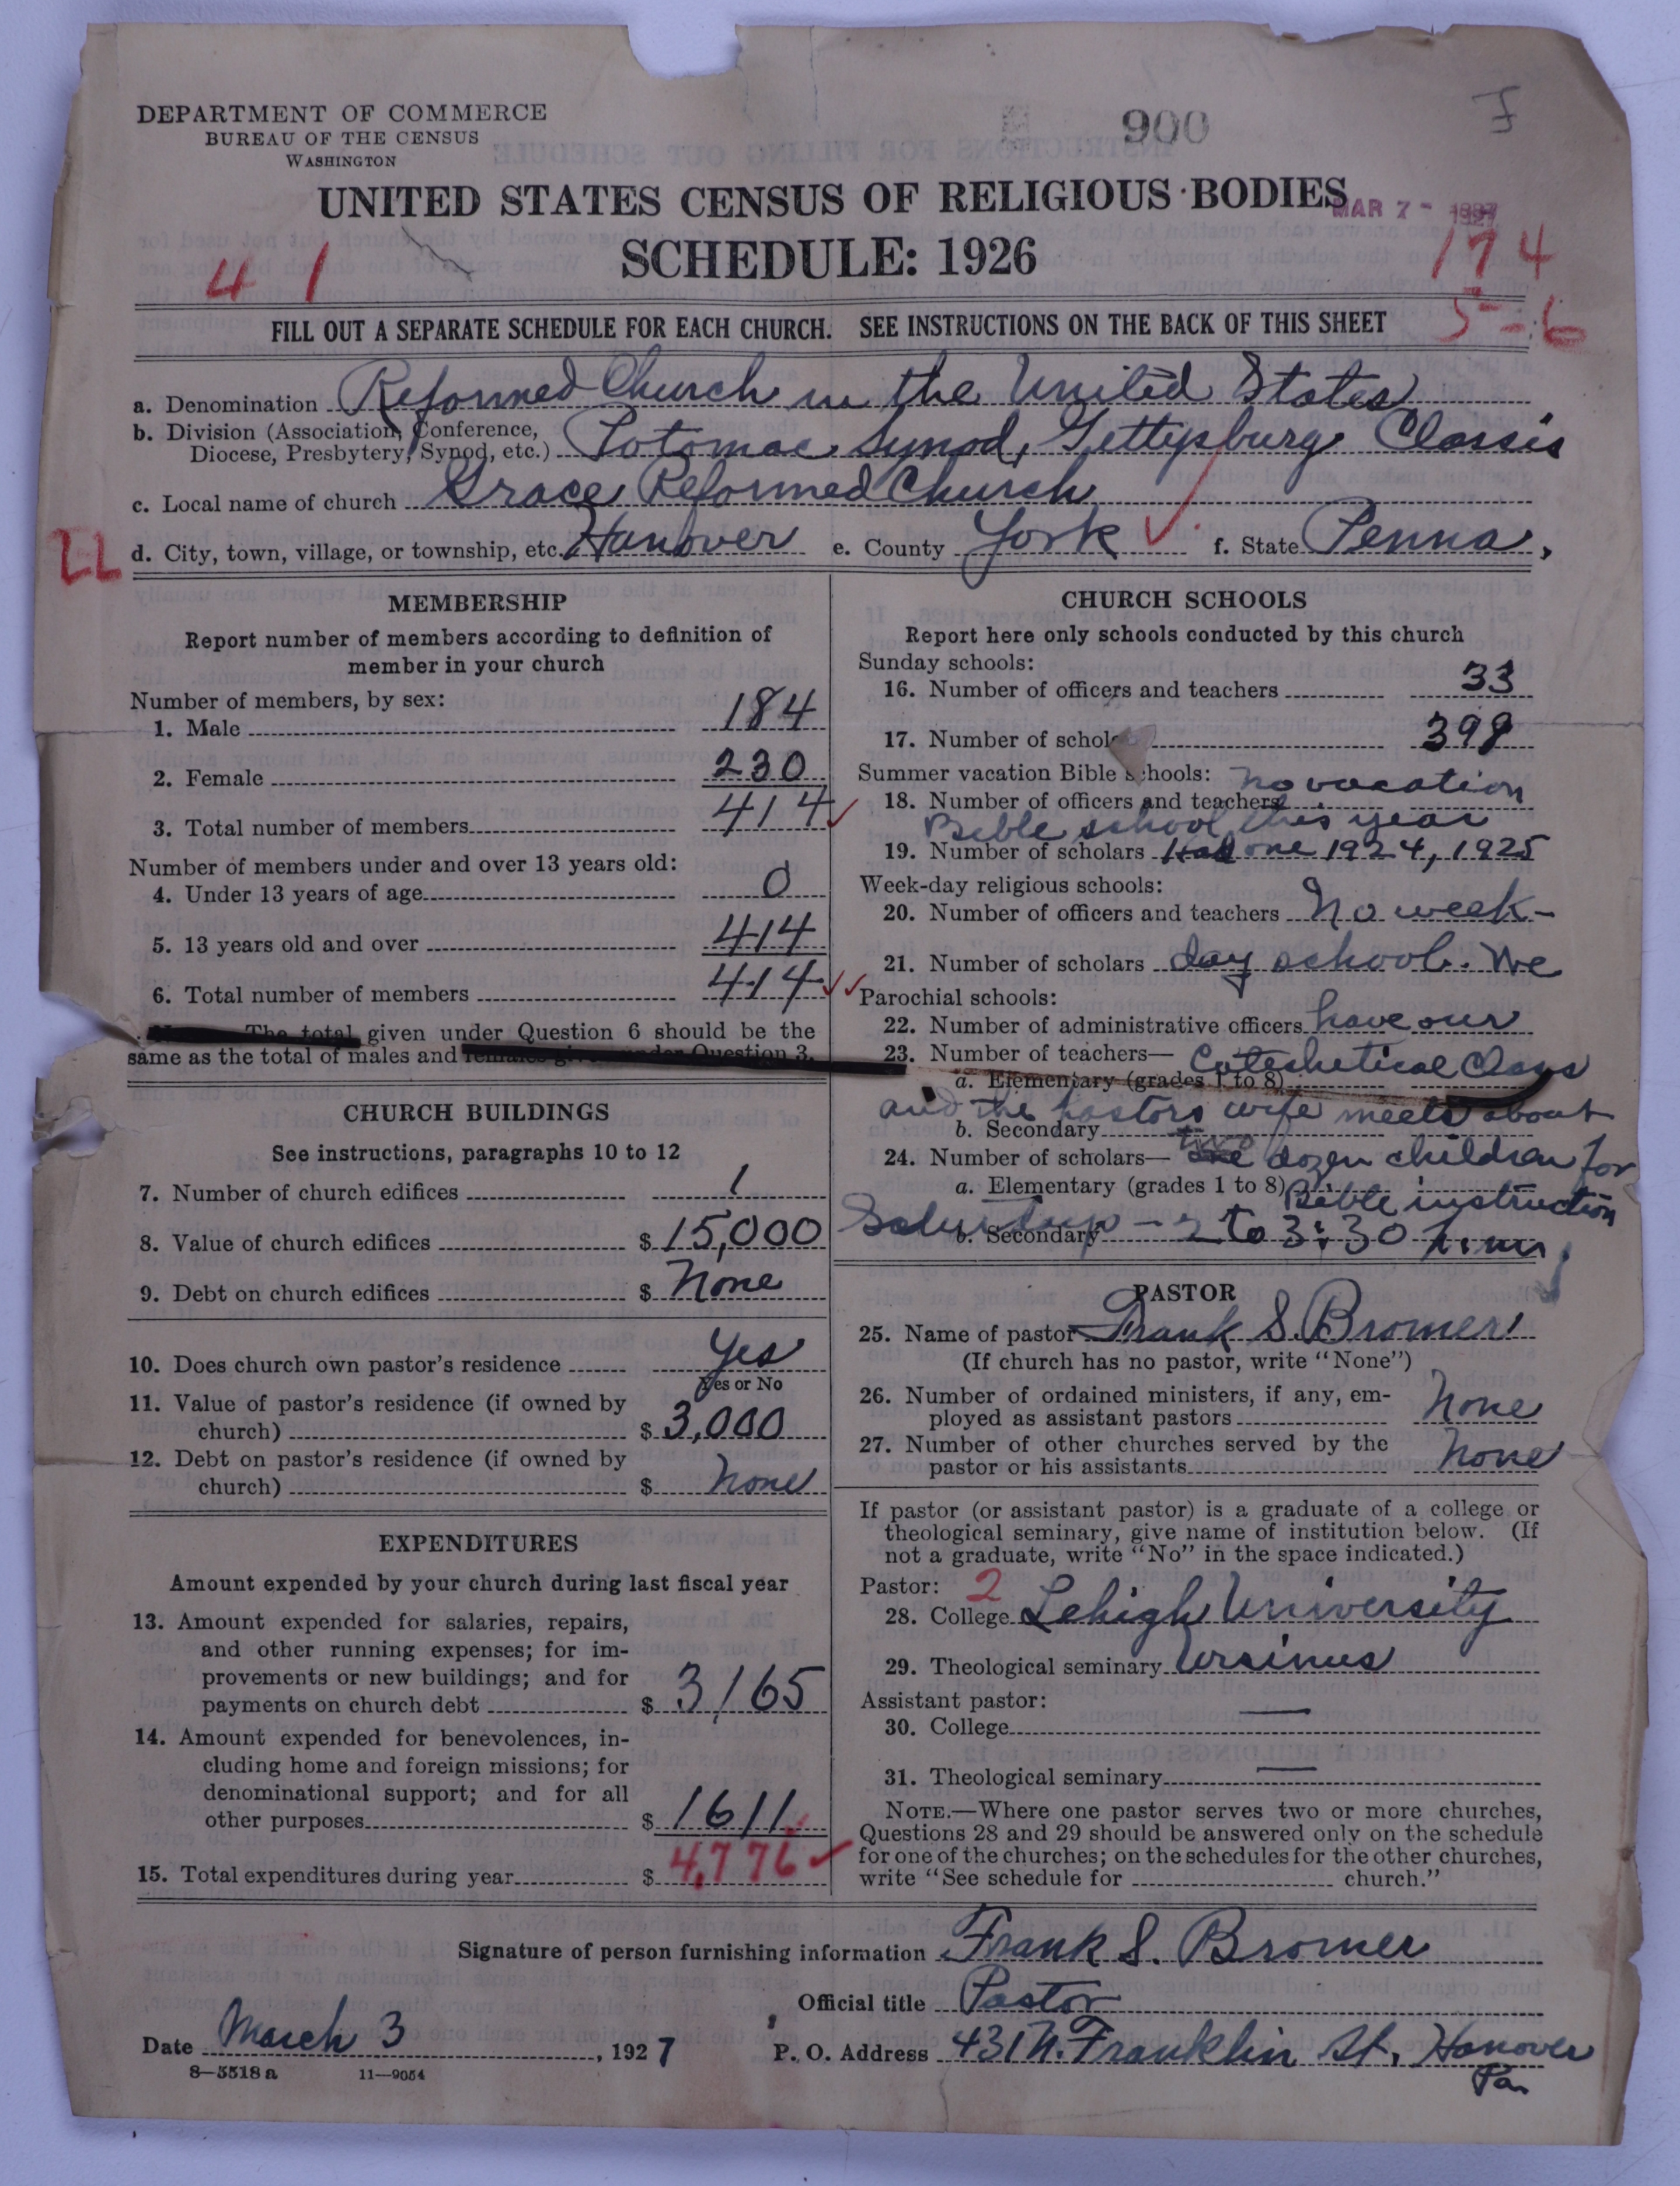 DEPARTMENT OF COMMERCE
BUREAU OF THE CENSUS
WASHINGTON
900
UNITED STATES CENSUS OF RELIGIOUS BODIES
MAR 7 - 1927
SCHEDULE: 1926
41
174
5-6
FILL OUT A SEPARATE SCHEDULE FOR EACH CHURCH. SEE INSTRUCTIONS ON THE BACK OF THIS SHEET
a. Denomination Reformed Church in the United States
b. Division (Association, Conference,
Diocese, Presbytery, Synod, etc.) Potomac Synod, Gettysburg Classis
c. Local name of church Grace Reformed Church
22
d. City, town, village, or township, etc. Hanover e. County York f. State Penna.
MEMBERSHIP
Report number of members according to definition of
member in your church
Number of members, by sex:
1. Male 184
2. Female 230
3. Total number of members 414
Number of members under and over 13 years old:
4. Under 13 years of age 0
5. 13 years old and over 414
6. Total number of members 414
The total given under Question 6 should be the
same as the total of males and females given under Question 3.
CHURCH BUILDINGS
See instructions, paragraphs 10 to 12
7. Number of church edifices 1
8. Value of church edifices $ 15,000
9. Debt on church edifices $ None
10. Does church own pastor's residence Yes
Yes or No
11. Value of pastor's residence (if owned by
church) $ 3,000
12. Debt on pastor's residence (if owned by
church) $ None
EXPENDITURES
Amount expended by your church during last fiscal year
13. Amount expended for salaries, repairs,
and other running expenses; for im-
provements or new buildings; and for
payments on church debt $ 3165
14. Amount expended for benevolences, in-
cluding home and foreign missions; for
denominational support; and for all
other purposes $ 1611
15. Total expenditures during year $ 4,776
CHURCH SCHOOLS
Report here only schools conducted by this church
Sunday schools:
16. Number of officers and teachers 33
17. Number of schol 398
Summer vacation Bible schools: No vacation
18. Number of officers and teachers
Bible school this year
19. Number of scholars Had one 1924, 1925
Week-day religious schools:
20. Number of officers and teachers No week-
21. Number of scholars day school. We
Parochial schools:
22. Number of administrative officers have our
23. Number of teachers— Catechetical Class
a. Elementary (grades 1 to 8)
and the pastors wife meets about
b. Secondary
24. Number of scholars— two dozen children for
a. Elementary (grades 1 to 8) Bible instruction
b. Secondary Saturday - 2 to 3:30 P.M.
PASTOR
25. Name of pastor Frank S. Bromer
(If church has no pastor, write "None")
26. Number of ordained ministers, if any, em-
ployed as assistant pastors None
27. Number of other churches served by the
pastor or his assistants None
If pastor (or assistant pastor) is a graduate of a college or
theological seminary, give name of institution below. (If
not a graduate, write "No" in the space indicated.)
Pastor: 2
28. College Lehigh University
29. Theological seminary Ursinus
Assistant pastor:
30. College —
31. Theological seminary —
NOTE.—Where one pastor serves two or more churches,
Questions 28 and 29 should be answered only on the schedule
for one of the churches; on the schedules for the other churches,
write "See schedule for church."
Signature of person furnishing information Frank S. Bromer
Official title Pastor
Date March 3, 1927 P. O. Address 431 N. Franklin St. Hanover
Pa.
8—5518 a 11—9054